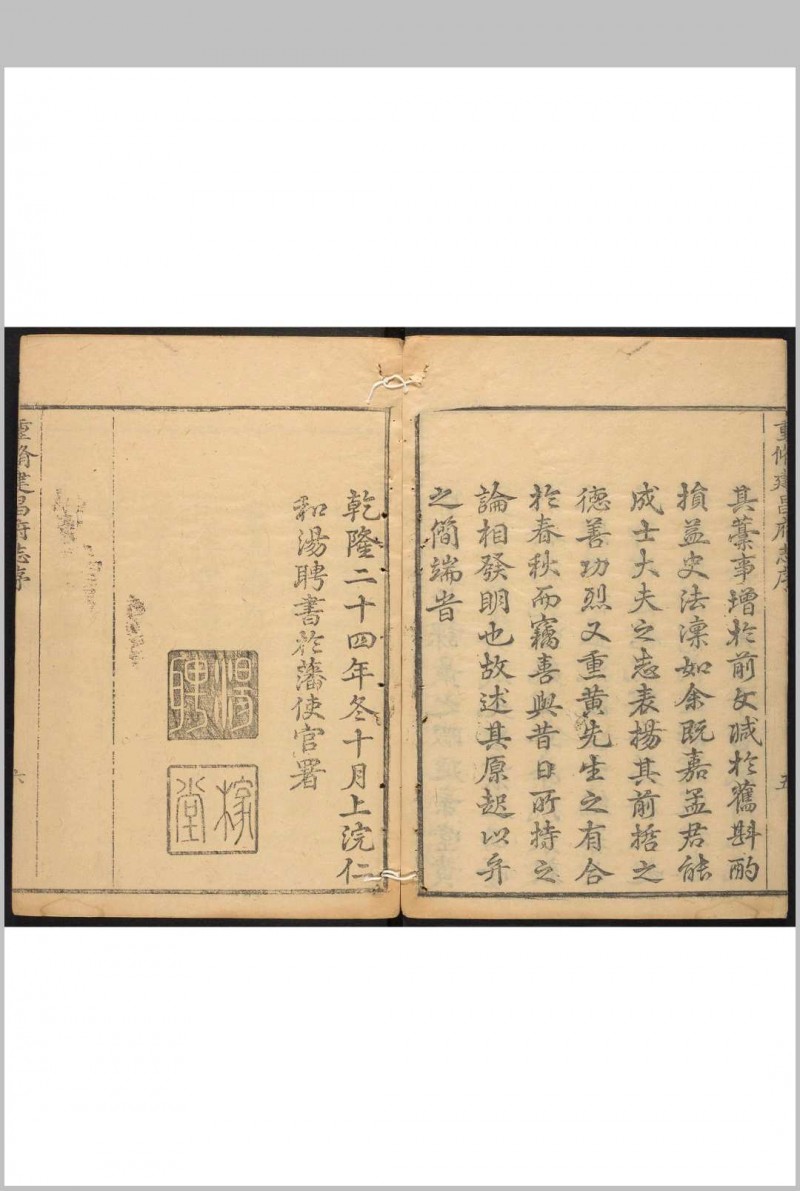 重脩建昌府志序
五
其藳事增於前文醎於舊斟酌
損益史法凜如余既嘉孟君能
成士大夫之志表揚其前哲之
德善功烈又重黄先生之有合
於春秋而竊喜與昔日所持之
論相發明也故述其原起以弁
之簡端旹
乾隆二十四年冬十月上浣仁
和湯聘書於藩使官署
湯聘
稼堂
重脩建昌府志序
六